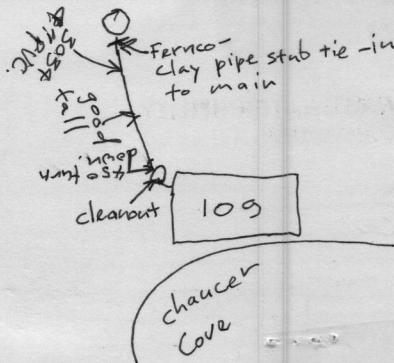 Fernco-
clay pipe stub tie-in
to main
PVC
good
fall
45° turn
down.
cleanout
109
chaucer
Cove